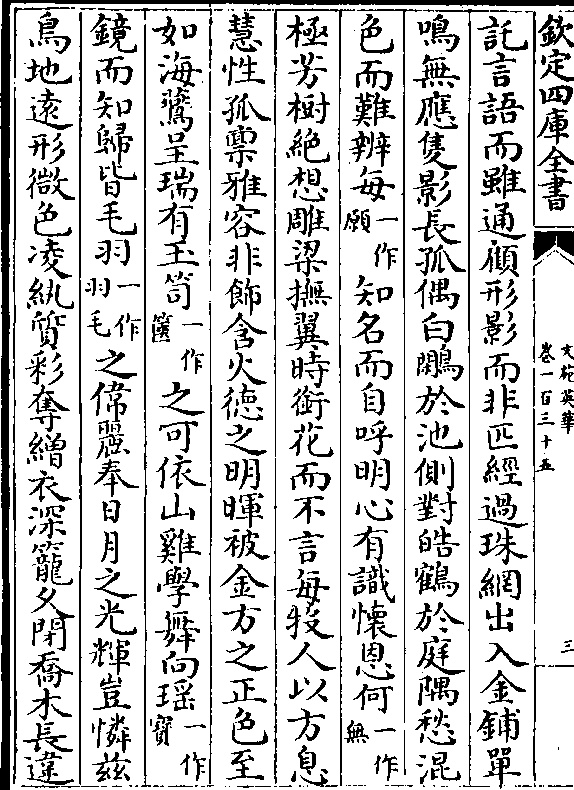 欽定四庫全書
文苑英華
卷一百三十五
三
託言語而雖通顧形影而非匹經過珠網出入金鋪單
鳴無應隻影長孤偶白鷴於池側對皓鶴於庭隅愁混
色而難辨每一作願知名而自呼明心有識懷恩何一作無
極芳樹絕想雕梁撫翼時銜花而不言每投人以方息
慧性孤稟雅容非飾含火德之明暉被金方之正色至
如海鷰呈瑞有玉笥一作篋之可依山雞學舞向瑶一作寳
鏡而知歸皆毛羽一作羽毛之偉麗奉日月之光輝豈憐兹
鳥地遠形微色凌紈質彩奪繒衣深籠久閉喬木長違